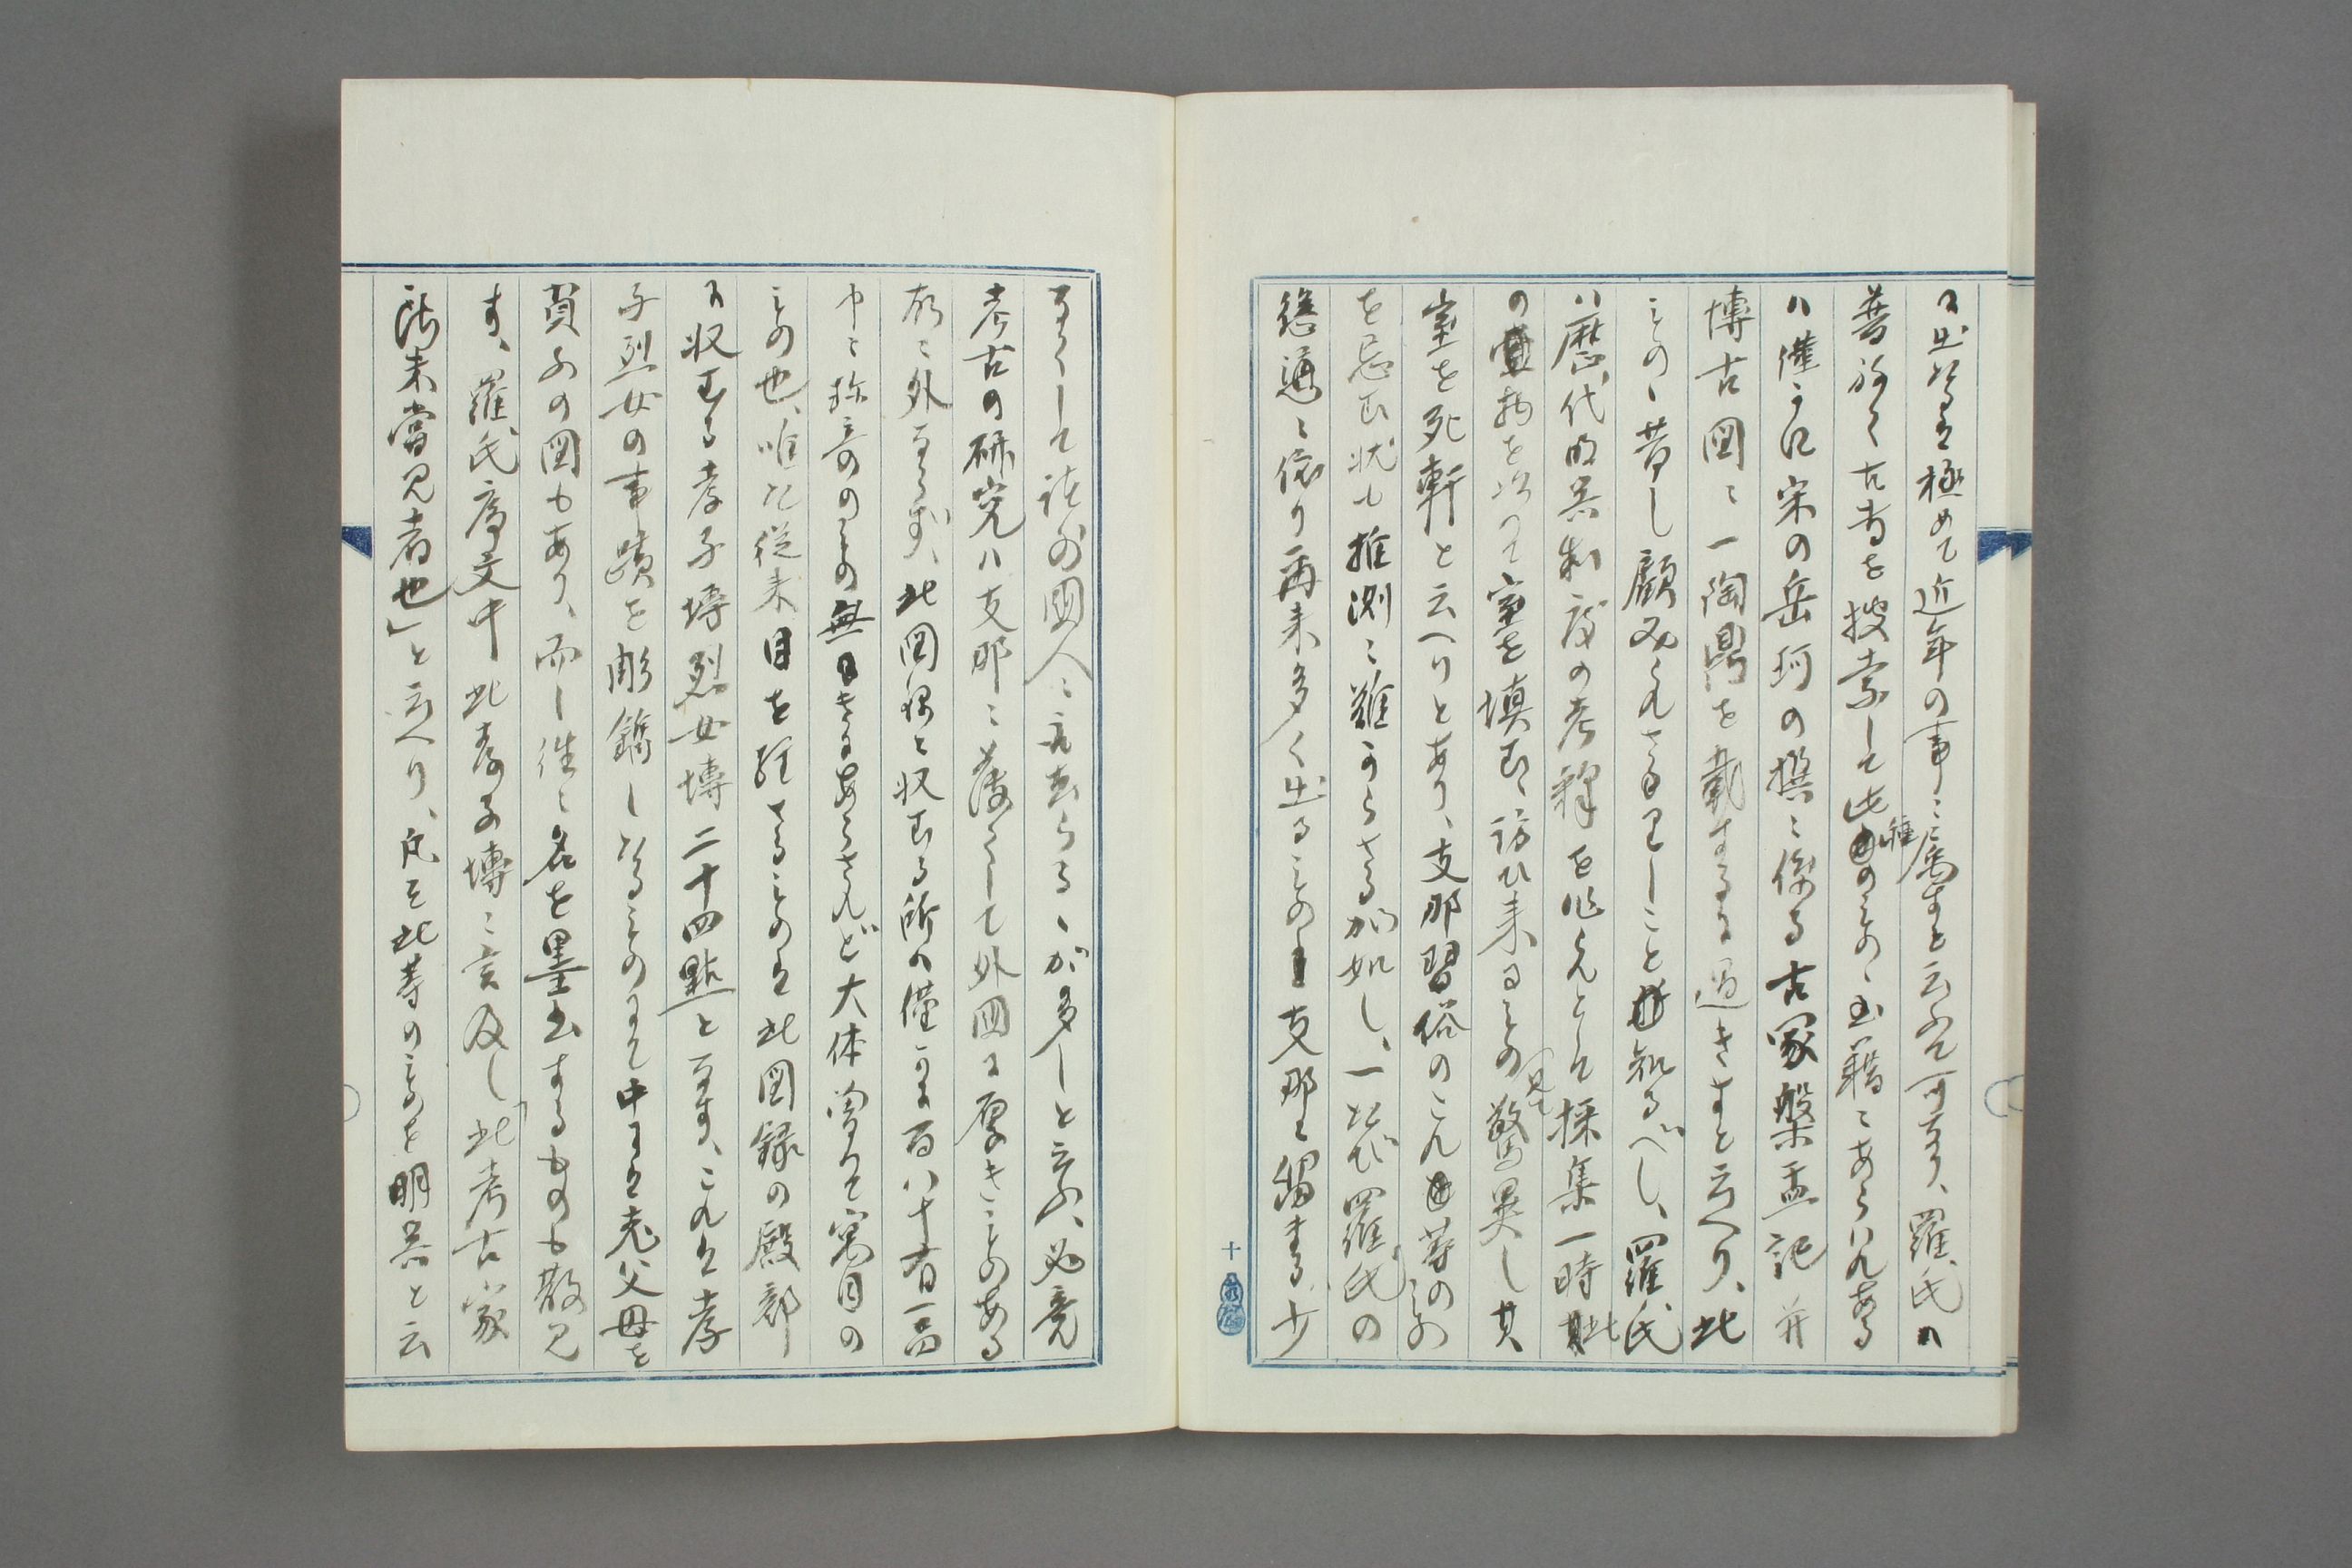 に出でたるは極めて近年の事に属すと云ふて可なり、羅氏ハ
普ねく古書を捜索して此種のもの、書籍にあらハれあるハ
ハ僅かに宋の岳珂の撰に係る古冢槃盂記并
博古図に一陶鼎を載するに過きすと云へり、此
もの、昔し顧みられさるりしこと知るべし、羅氏
ハ歴代明器制度の考釋を作らんとして採集一時此
の物を以て室を填め、訪ひ来るもの見て驚異し其
室を死軒と云へりとあり、支那習俗のこれ等のもの
を忌む状も推測に難からさるが如し、一たび羅氏の
慫慂に依り再来多く出るもの支那に留まる少
なくして諸外國人に購去らるゝが多しと云ふ、必竟
考古の研究ハ支那に薄くして外国に厚きものある
故に外ならず、此図録に収むる所ハ僅かに百八十有一品
中に珍奇のもの無きにあらされど大体曽て寓目の
もの也、唯た従来目を経さるものは此図録の殿部
に収むる孝子塼烈女塼二十四點となす、これは孝
子烈女の事蹟を彫鐫したるものにて中には老父母を
負ふの図もあり、而し往々名を墨書するものも散見
す、羅氏序文中此孝子塼に言及し「此考古家
所未嘗見者也」と云へり、凡そ此等のものを明器と云
十